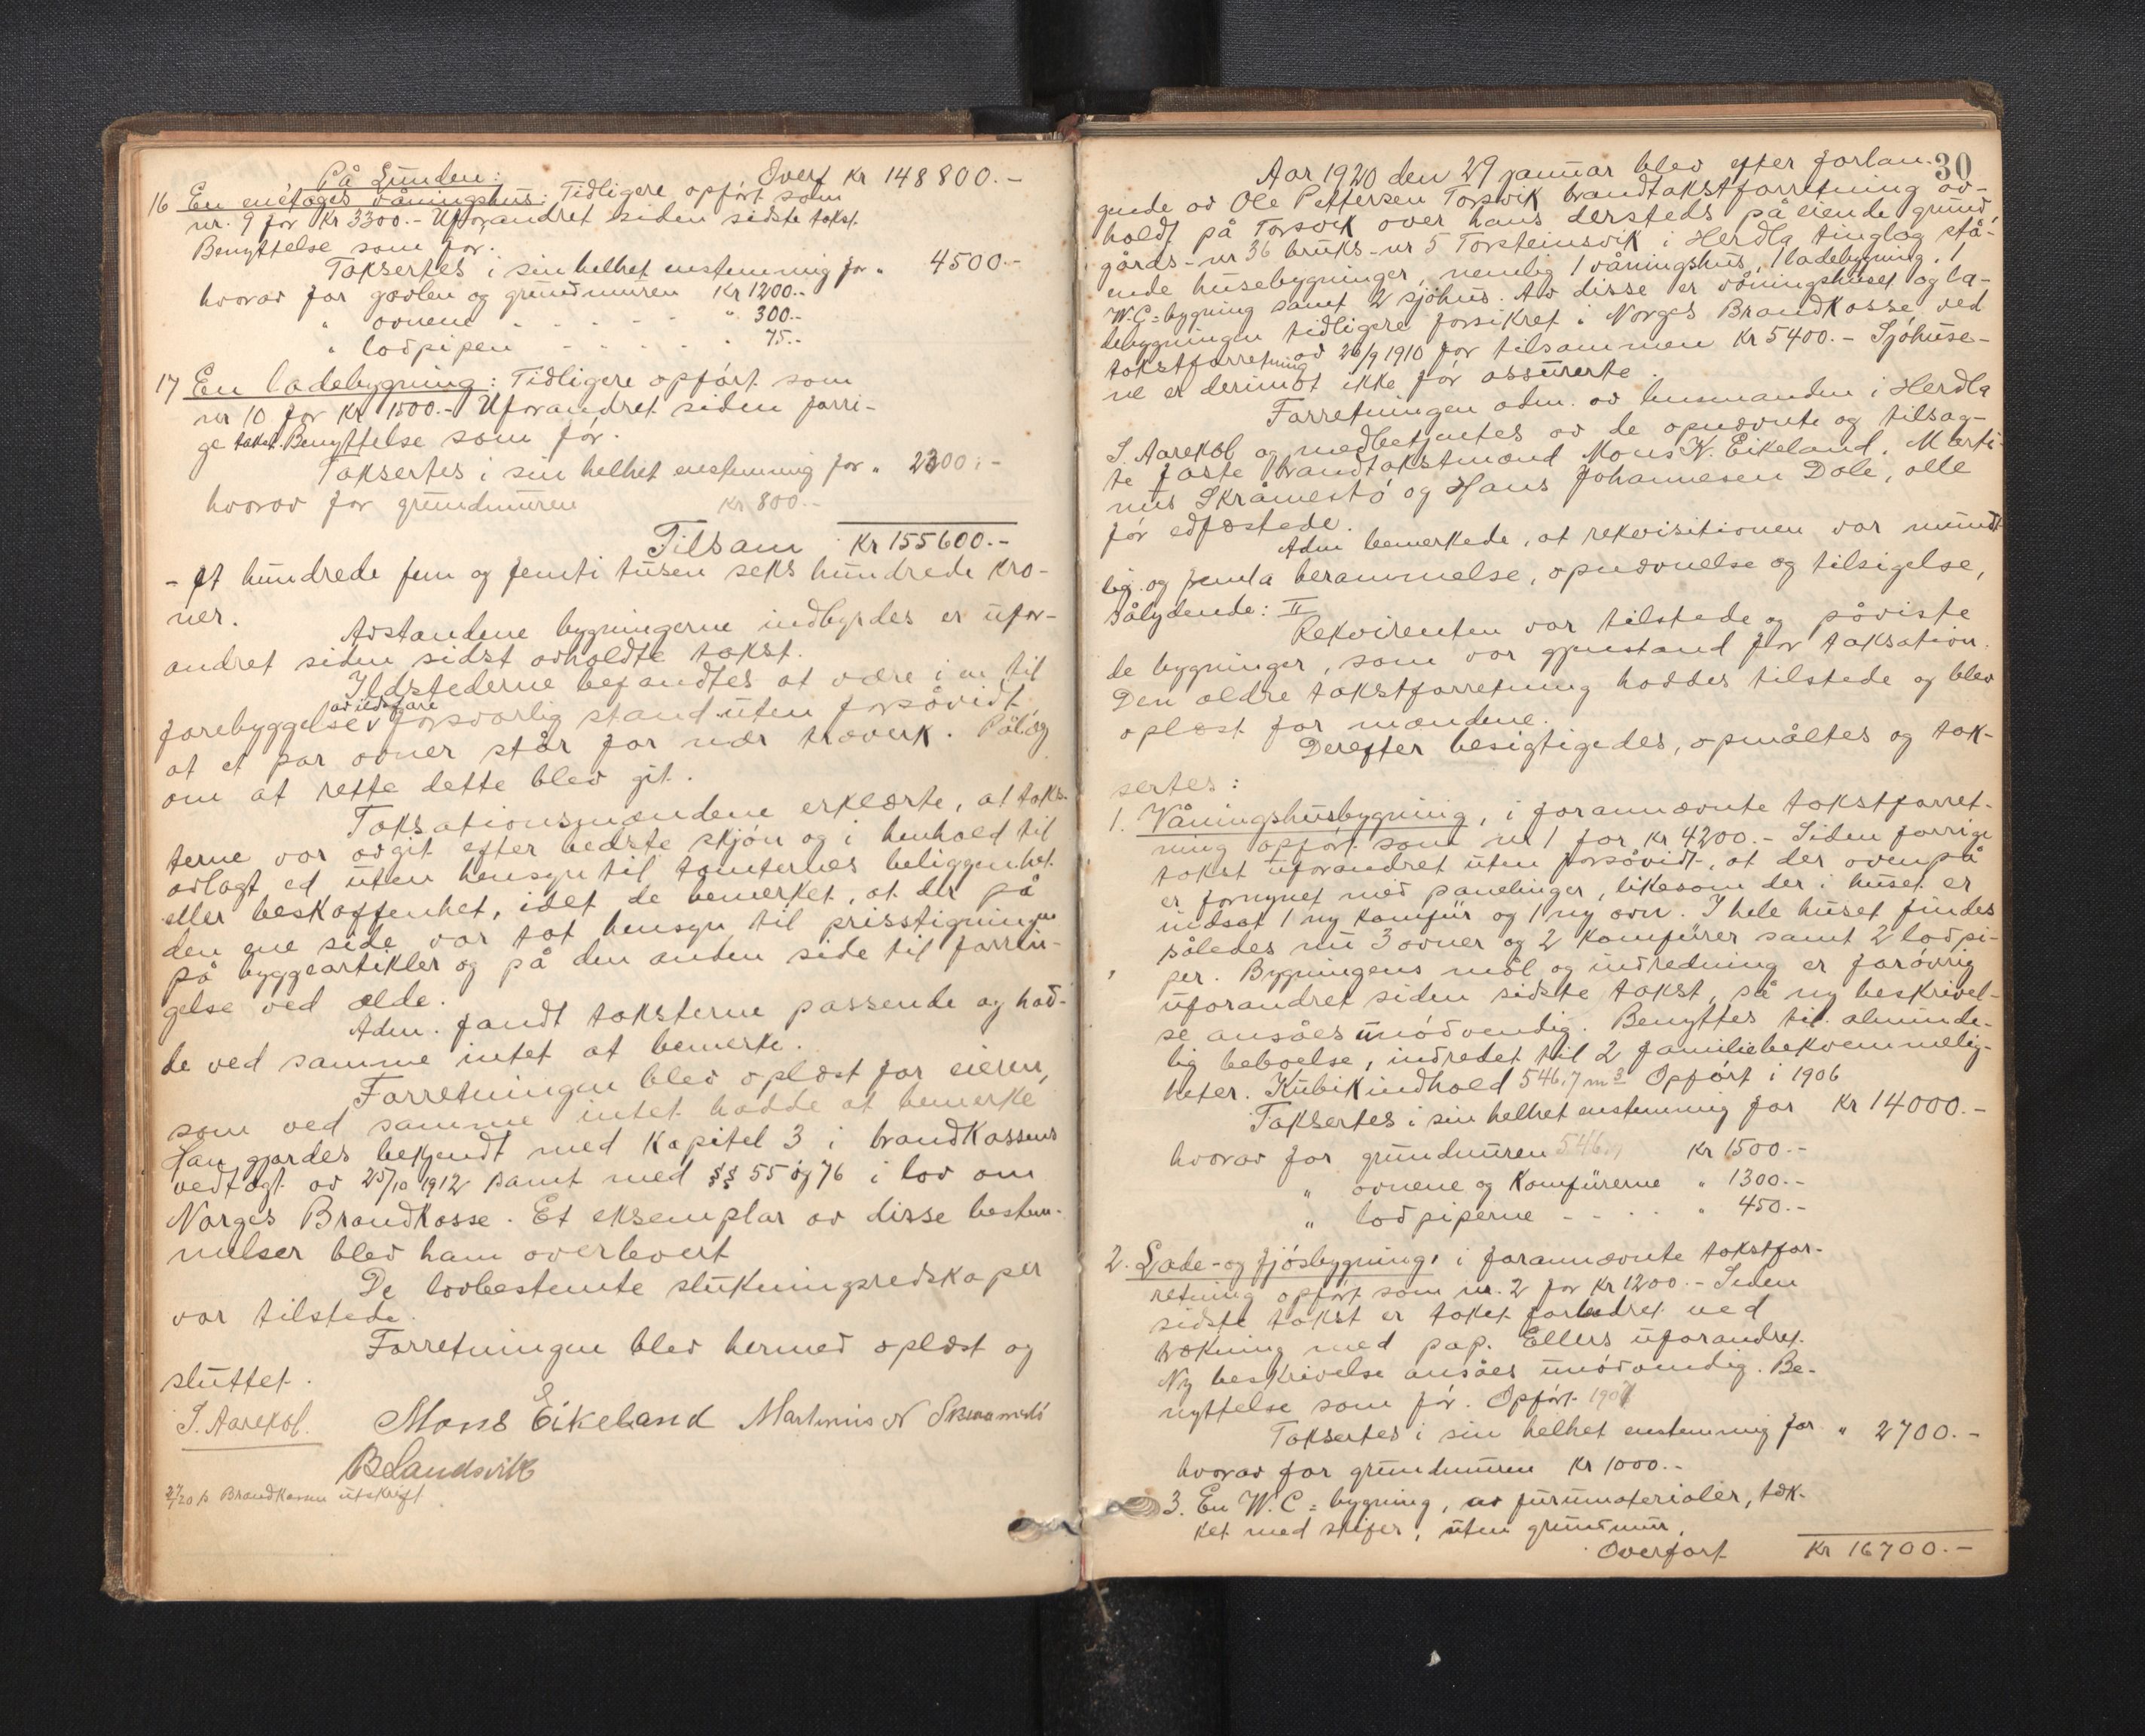 På Lunden: Overf Kr 148800.-
16 En enetages våningshus: Tidligere opført som
nr. 9 for Kr 3300.- Uforandret siden sidste takst.
Benyttelse som før.
Taksertes i sin helhet enstemmig for " 4500.-
hvorav for gavlen og grundmuren Kr 1200.-
" ovnene - - - - - " 300.-
" lodpipen - - - - - " 75.-
17 En ladebygning: Tidligere opført som
nr 10 for Kr 1500.- Uforandret siden forri-
ge takst. Benyttelse som før.
Taksertes i sin helhet enstemmig for " 2300.-
hvorav for grundmuren Kr 800.-
Tilsam Kr 155600.-
- Et hundrede fem og femti tusen seks hundrede kro-
ner.
Avstandene bygningerne indbyrdes er ufor-
andret siden sidst avholdte takst.
Ildstederne befandtes at være i en til
av ildsfare
forebyggelse forsvarlig stand uten forsåvidt,
at et par ovner står for nær træverk. Pålæg
om at rette dette blev git.
Taksationsmændene erklærte, at taks-
terne var avgit efter bedste skjøn og i henhold til
avlagt ed uten hensyn til tomternes beliggenhet
eller beskaffenhet, idet de bemerket, at der på
den ene side var tat hensyn til prisstigningen
på byggeartikler og på den anden side til forrin-
gelse ved ælde.
Adm. fandt taksterne passende og had-
de ved samme intet at bemerke.
Forretningen blev oplæst for eieren,
som ved samme intet hadde at bemerke
Han gjordes bekjendt med Kapitel 3 i brandkassens
vedtægt av 25/10 1912 samt med §§ 55 og 76 i lov om
Norges Brandkasse. Et eksemplar av disse bestem-
melser blev ham overlevert
De lovbestemte slukningsredskaper
var tilstede.
Forretningen blev hermed oplæst og
sluttet.
S. Aarekol. Mons E Eikeland Martinus N Skraamestø
B Landsvik
2/7 20 p Brandkassen utskrift
30
Aar 1920 den 29 januar blev efter forlan-
gende av Ole Pettersen Torsvik brandtakstforretning av-
holdt på Torsvik over hans dersteds på eiende grund,
gårds-nr 36 bruks-nr 5 Torsteinsvik i Herdla tinglag stå-
ende husebygninger, nemlig 1 våningshus, 1 ladebygning, 1
W.C=bygning samt 2 sjøhus. Av disse er våningshuset og la-
debygningen tidligere forsikret i Norges Brandkasse ved
takstforretning av 26/9 1910 for tilsammen Kr 5400.- Sjøhuse-
ne er derimot ikke før assurerte.
Forretningen adm. av lensmanden i Herdla
S. Aarekol og medbetjentes av de opnævnte og tilsag-
te faste brandtakstmænd Mons K. Eikeland, Marti-
nus Skråmestø og Hans Johannesen Dale, alle
før edfæstede.
Adm bemerkede, at rekvisitionen var mundt
lig og fremla berammelse, opnævnelse og tilsigelse,
sålydende: II
Rekvirenten var tilstede og påviste
de bygninger, som var gjenstand for taksation.
Den ældre takstforretning haddes tilstede og blev
oplæst for mændene.
Derefter besigtigedes, opmåltes og tak-
sertes:
1. Våningshusbygning, i forannævnte takstforret-
ning opført som nr 1 for Kr 4200.- Siden forrige
takst uforandret uten forsåvidt, at der ovenpå
er fornyet med panelinger, likesom der i huset er
indsat 1 ny komfur og 1 ny ovn. I hele huset findes
således nu 3 ovner og 2 komfurer samt 2 lodpi-
per. Bygningens mål og indredning er forøvrig
uforandret siden sidste takst, så ny beskrivel-
se ansåes unødvendig. Benyttes til alminde-
lig beboelse, indredet til 2 familiebekvemmelig-
heter. Kubikindhold 546,7 m3 Opført i 1906
Taksertes i sin helhet enstemmig for Kr 14000.-
hvorav for grundmuren 546,7 Kr 1500.-
" ovnene og Komfurerne " 1300.-
" lodpiperne - - - - " 450.-
2. Lade- og fjøsbygning, i forannævnte takstfor-
retning opført som nr. 2 for Kr 1200.- Siden
sidste takst er taket forbedret ved
tækning med pap. Ellers uforandret.
Ny beskrivelse ansåes unødvendig. Be-
nyttelse som før. Opført 1907
Taksertes i sin helhet enstemmig for " 2700.-
hvorav for grundmuren Kr 1000.-
3. En W.C=bygning, av furumaterialer, tæk-
ket med skifer, uten grundmur.
Overført Kr 16700.-